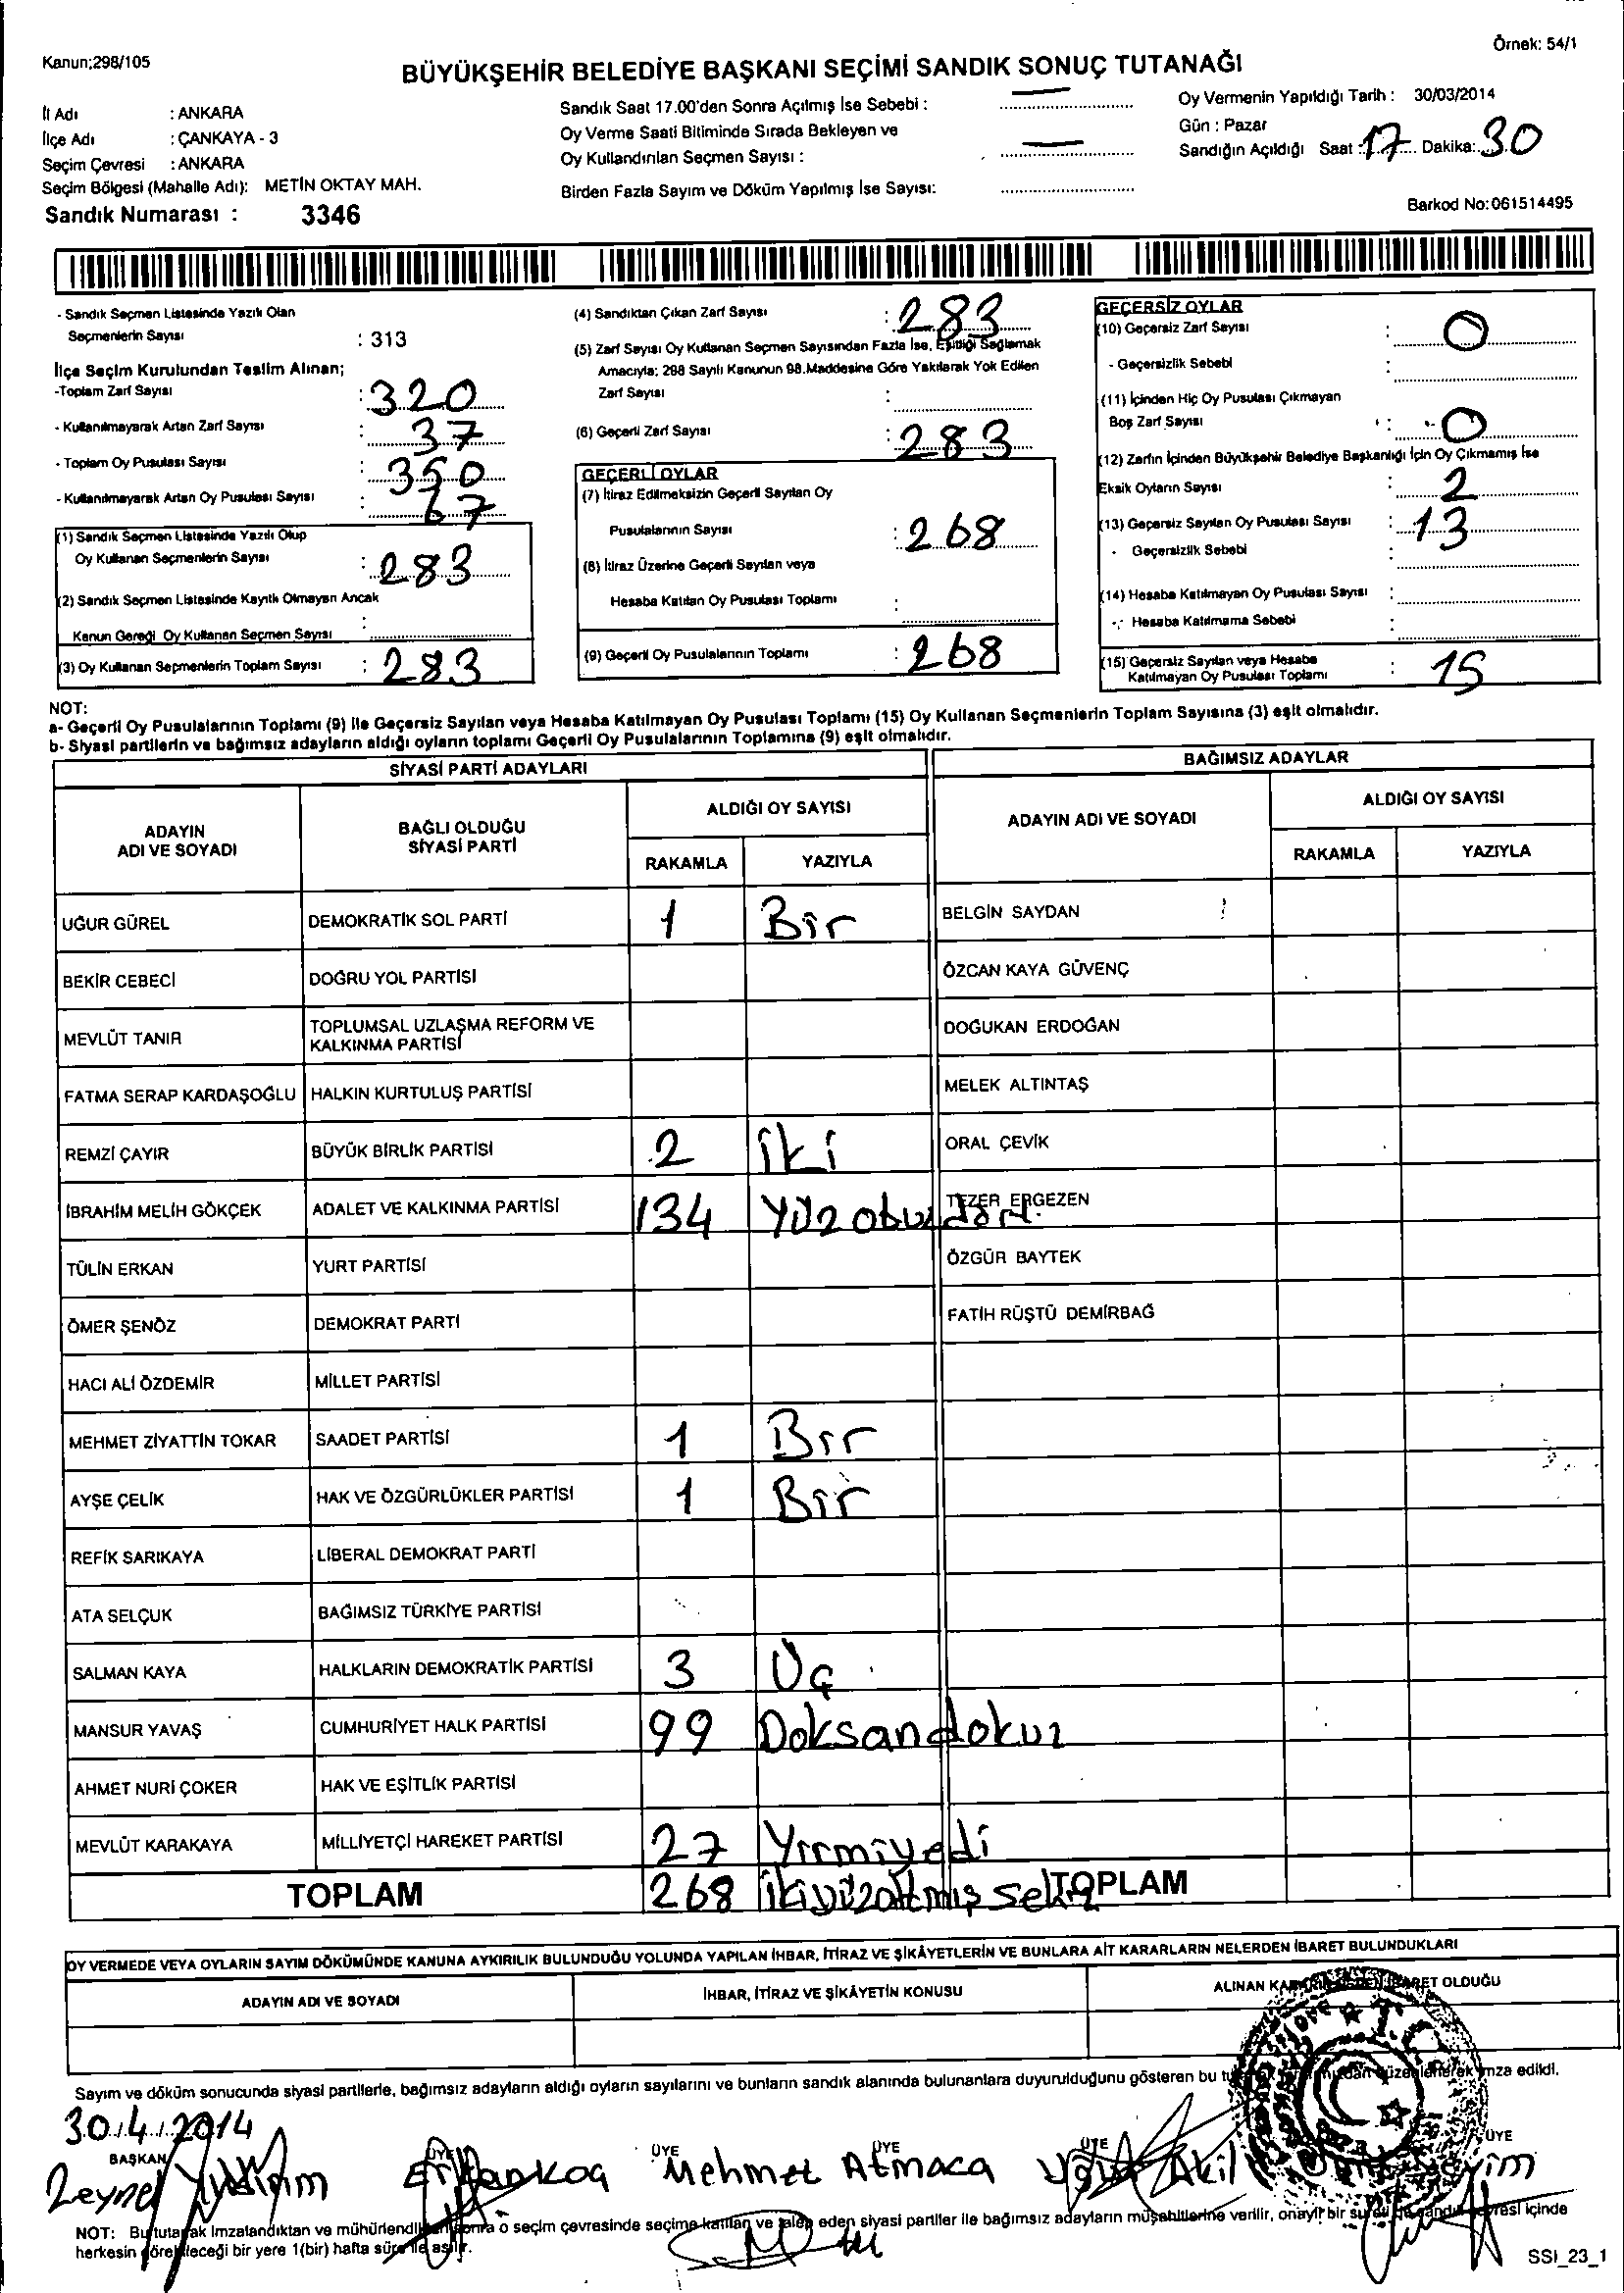 Örnek: 54/1
Kanun;298/105
BÜYÜKŞEHİR BELEDİYE BAŞKANI SEÇİMİ SANDIK SONUÇ TUTANAĞI
İl Adı : ANKARA
İlçe Adı : ÇANKAYA - 3
Seçim Çevresi : ANKARA
Seçim Bölgesi (Mahalle Adı): METİN OKTAY MAH.
Sandık Numarası : 3346
Sandık Saat 17.00'den Sonra Açılmış İse Sebebi : —
Oy Verme Saati Bitiminde Sırada Bekleyen ve
Oy Kullandırılan Seçmen Sayısı : —
Birden Fazla Sayım ve Döküm Yapılmış İse Sayısı:
Oy Vermenin Yapıldığı Tarih : 30/03/2014
Gün : Pazar
Sandığın Açıldığı Saat : 17 Dakika: 30
Barkod No:061514495
- Sandık Seçmen Listesinde Yazılı Olan
Seçmenlerin Sayısı : 313
İlçe Seçim Kurulundan Teslim Alınan;
-Toplam Zarf Sayısı : 320
- Kullanılmayarak Artan Zarf Sayısı : 37
- Toplam Oy Pusulası Sayısı : 350
- Kullanılmayarak Artan Oy Pusulası Sayısı : 67
(1) Sandık Seçmen Listesinde Yazılı Olup
Oy Kullanan Seçmenlerin Sayısı : 283
(2) Sandık Seçmen Listesinde Kayıtlı Olmayan Ancak
Kanun Gereği Oy Kullanan Seçmen Sayısı :
(3) Oy Kullanan Seçmenlerin Toplam Sayısı : 283
(4) Sandıktan Çıkan Zarf Sayısı : 283
(5) Zarf Sayısı Oy Kullanan Seçmen Sayısından Fazla İse, Eşitliği Sağlamak
Amacıyla; 298 Sayılı Kanunun 98.Maddesine Göre Yakılarak Yok Edilen
Zarf Sayısı :
(6) Geçerli Zarf Sayısı : 283
GEÇERLİ OYLAR
(7) İtiraz Edilmeksizin Geçerli Sayılan Oy
Pusulalarının Sayısı : 268
(8) İtiraz Üzerine Geçerli Sayılan veya
Hesaba Katılan Oy Pusulası Toplamı :
(9) Geçerli Oy Pusulalarının Toplamı : 268
GEÇERSİZ OYLAR
(10) Geçersiz Zarf Sayısı : 0
- Geçersizlik Sebebi :
(11) İçinden Hiç Oy Pusulası Çıkmayan
Boş Zarf Sayısı : 0
(12) Zarfın İçinden Büyükşehir Belediye Başkanlığı İçin Oy Çıkmamış İse
Eksik Oyların Sayısı : 2
(13) Geçersiz Sayılan Oy Pusulası Sayısı : 13
- Geçersizlik Sebebi :
(14) Hesaba Katılmayan Oy Pusulası Sayısı :
- Hesaba Katılmama Sebebi :
(15) Geçersiz Sayılan veya Hesaba
Katılmayan Oy Pusulası Toplamı : 15
NOT:
a- Geçerli Oy Pusulalarının Toplamı (9) ile Geçersiz Sayılan veya Hesaba Katılmayan Oy Pusulası Toplamı (15) Oy Kullanan Seçmenlerin Toplam Sayısına (3) eşit olmalıdır.
b- Siyasi partilerin ve bağımsız adayların aldığı oyların toplamı Geçerli Oy Pusulalarının Toplamına (9) eşit olmalıdır.
SİYASİ PARTİ ADAYLARI
BAĞIMSIZ ADAYLAR
ADAYIN
ADI VE SOYADI
BAĞLI OLDUĞU
SİYASİ PARTİ
ALDIĞI OY SAYISI
RAKAMLA YAZIYLA
ADAYIN ADI VE SOYADI
ALDIĞI OY SAYISI
RAKAMLA YAZIYLA
UĞUR GÜREL DEMOKRATİK SOL PARTİ 1 Bir BELGİN SAYDAN
BEKİR CEBECİ DOĞRU YOL PARTİSİ ÖZCAN KAYA GÜVENÇ
MEVLÜT TANIR TOPLUMSAL UZLAŞMA REFORM VE
KALKINMA PARTİSİ DOĞUKAN ERDOĞAN
FATMA SERAP KARDAŞOĞLU HALKIN KURTULUŞ PARTİSİ MELEK ALTINTAŞ
REMZİ ÇAYIR BÜYÜK BİRLİK PARTİSİ 2 iki ORAL ÇEVİK
İBRAHİM MELİH GÖKÇEK ADALET VE KALKINMA PARTİSİ 134 Yüzotuzdört TEZER ERGEZEN
TÜLİN ERKAN YURT PARTİSİ ÖZGÜR BAYTEK
ÖMER ŞENÖZ DEMOKRAT PARTİ FATİH RÜŞTÜ DEMİRBAĞ
HACI ALİ ÖZDEMİR MİLLET PARTİSİ
MEHMET ZİYATTİN TOKAR SAADET PARTİSİ 1 Bir
AYŞE ÇELİK HAK VE ÖZGÜRLÜKLER PARTİSİ 1 Bir
REFİK SARIKAYA LİBERAL DEMOKRAT PARTİ
ATA SELÇUK BAĞIMSIZ TÜRKİYE PARTİSİ
SALMAN KAYA HALKLARIN DEMOKRATİK PARTİSİ 3 Üç
MANSUR YAVAŞ CUMHURİYET HALK PARTİSİ 99 Doksandokuz
AHMET NURİ ÇOKER HAK VE EŞİTLİK PARTİSİ
MEVLÜT KARAKAYA MİLLİYETÇİ HAREKET PARTİSİ 27 Yirmiyedi
TOPLAM 268 ikiyüzaltmış sekiz TOPLAM
OY VERMEDE VEYA OYLARIN SAYIM DÖKÜMÜNDE KANUNA AYKIRILIK BULUNDUĞU YOLUNDA YAPILAN İHBAR, İTİRAZ VE ŞİKÂYETLERİN VE BUNLARA AİT KARARLARIN NELERDEN İBARET BULUNDUKLARI
ADAYIN ADI VE SOYADI İHBAR, İTİRAZ VE ŞİKÂYETİN KONUSU ALINAN KARARIN NEDEN İBARET OLDUĞU
Sayım ve döküm sonucunda siyasi partilerle, bağımsız adayların aldığı oyların sayılarını ve bunların sandık alanında bulunanlara duyurulduğunu gösteren bu tutanak tarafımızdan düzenlenerek imza edildi.
30/4/2014
BAŞKAN ÜYE ÜYE ÜYE ÜYE ÜYE
Zeynel Yıldırım Mehmet Atmaca Akil
NOT: Bu tutanak imzalandıktan ve mühürlendikten sonra o seçim çevresinde seçime katılan ve talep eden siyasi partiler ile bağımsız adayların müşahitlerine verilir, onaylı bir sureti de sandık çevresi içinde
herkesin görebileceği bir yere 1(bir) hafta süre ile asılır.
SSI_23_1